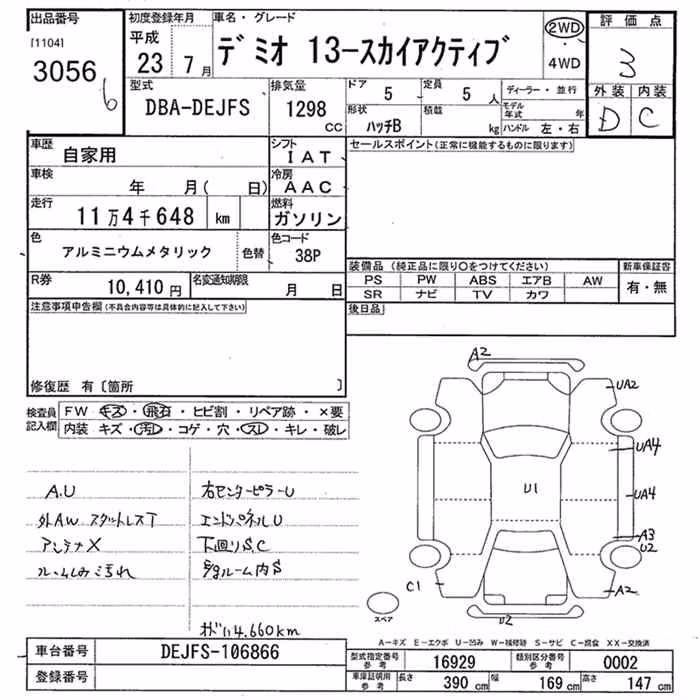 出品番号 初度登録年月 車名・グレード 2WD 評価点
[1104] 平成 デミオ 13-スカイアクティブ 4WD 3
3056 6 23 7月
型式 排気量 ドア 5 定員 5人 ディーラー・並行 外装 内装
DBA-DEJFS 1298 CC 形状 ハッチB 積載 kg モデル年式 年 D C
ハンドル 左・右
車歴 自家用 シフト IAT セールスポイント(正常に機能するものに限ります)
車検 年 月( 日) 冷房 AAC
走行 11万4千648 km 燃料 ガソリン
色 アルミニウムメタリック 色替 色コード 38P
装備品(純正品に限り○をつけてください) 新車保証書
R券 10,410円 名変通知期限 月 日 PS PW ABS エアB AW 有・無
SR ナビ TV カワ
注意事項申告欄(不具合内容等は具体的に記入して下さい) 後日品
修復歴 有〔箇所 〕
検査員記入欄 FW キズ・飛石・ヒビ割・リペア跡・×要
内装 キズ・汚レ・コゲ・穴・スレ・キレ・破レ
A2
UA2
UA4
U1 UA4
A3
U2
C1 A2
U2
スペア
A.U 右センターピラーU
外AW スタットレスT エンドパネルU
アンテナX 下回りS,C
ルームしみ汚れ ルーム内S
4,660km
A-キズ E-エクボ U-凹み W-補修跡 S-サビ C-腐食 XX-交換済
車台番号 DEJFS-106866 型式指定番号 参考 16929 類別区分番号 参考 0002
登録番号 車庫証明用 参考 長さ 390cm 幅 169cm 高さ 147cm